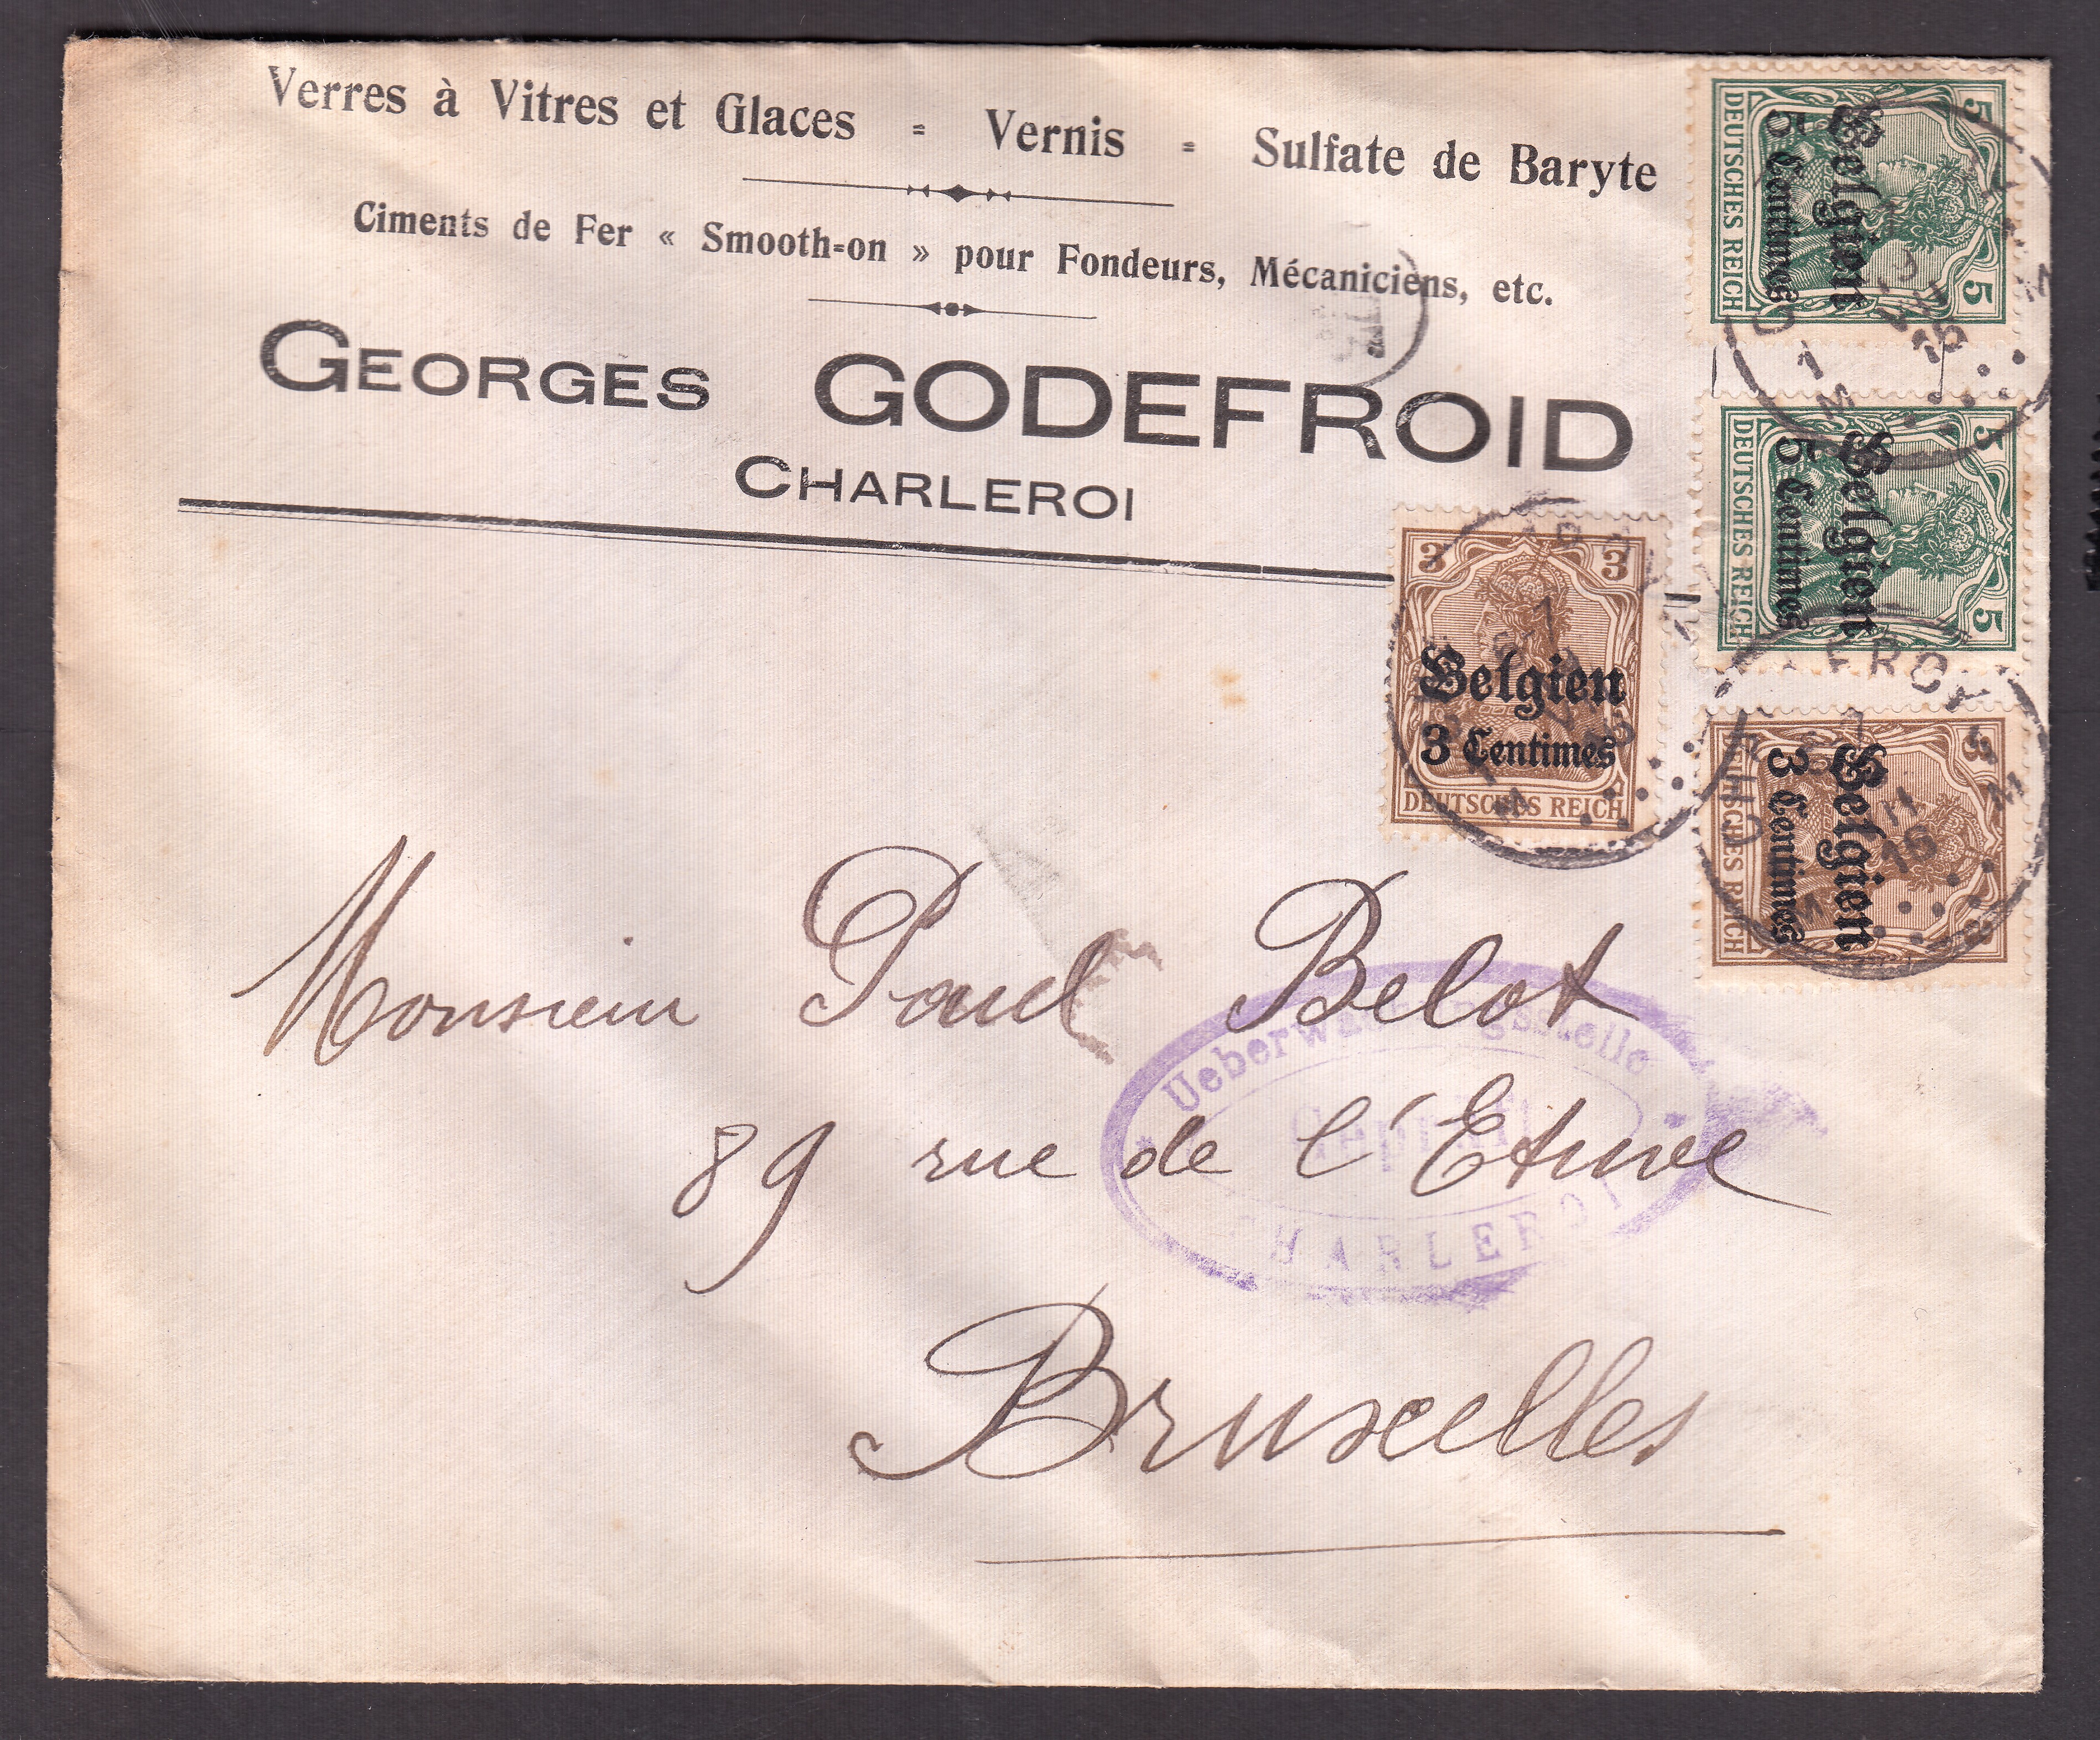 Verres à Vitres et Glaces = Vernis = Sulfate de Baryte
Ciments de Fer « Smooth=on » pour Fondeurs, Mécaniciens, etc.
GEORGES GODEFROID
CHARLEROI
5 5
Belgien
5 Centimes
DEUTSCHES REICH
5 5
Belgien
5 Centimes
DEUTSCHES REICH
3 3
Belgien
3 Centimes
DEUTSCHES REICH
3
Belgien
3 Centimes
REICH
16
Monsieur Paul Belot
89 rue de l'Etuve
Bruxelles
Ueberwachungsstelle
Geprüft
CHARLEROI